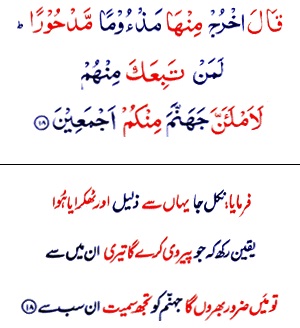 قَالَ اخْرُجْ مِنْهَا مَذْءُوْمًا مَّدْحُوْرًا ؕ
لَمَنْ تَبِعَكَ مِنْهُمْ
لَاَمْلَـَٔنَّ جَهَنَّمَ مِنْكُمْ اَجْمَعِيْنَ ﴿۱۸﴾
فرمایا: نکل جا یہاں سے ذلیل اور ٹھکرایا ہُوا
یقین رکھ کہ جو پیروی کرے گا تیری ان میں سے
تو مَیں ضرور بھروں گا جہنّم کو تجھ سمیت ان سب سے ﴿۱۸﴾